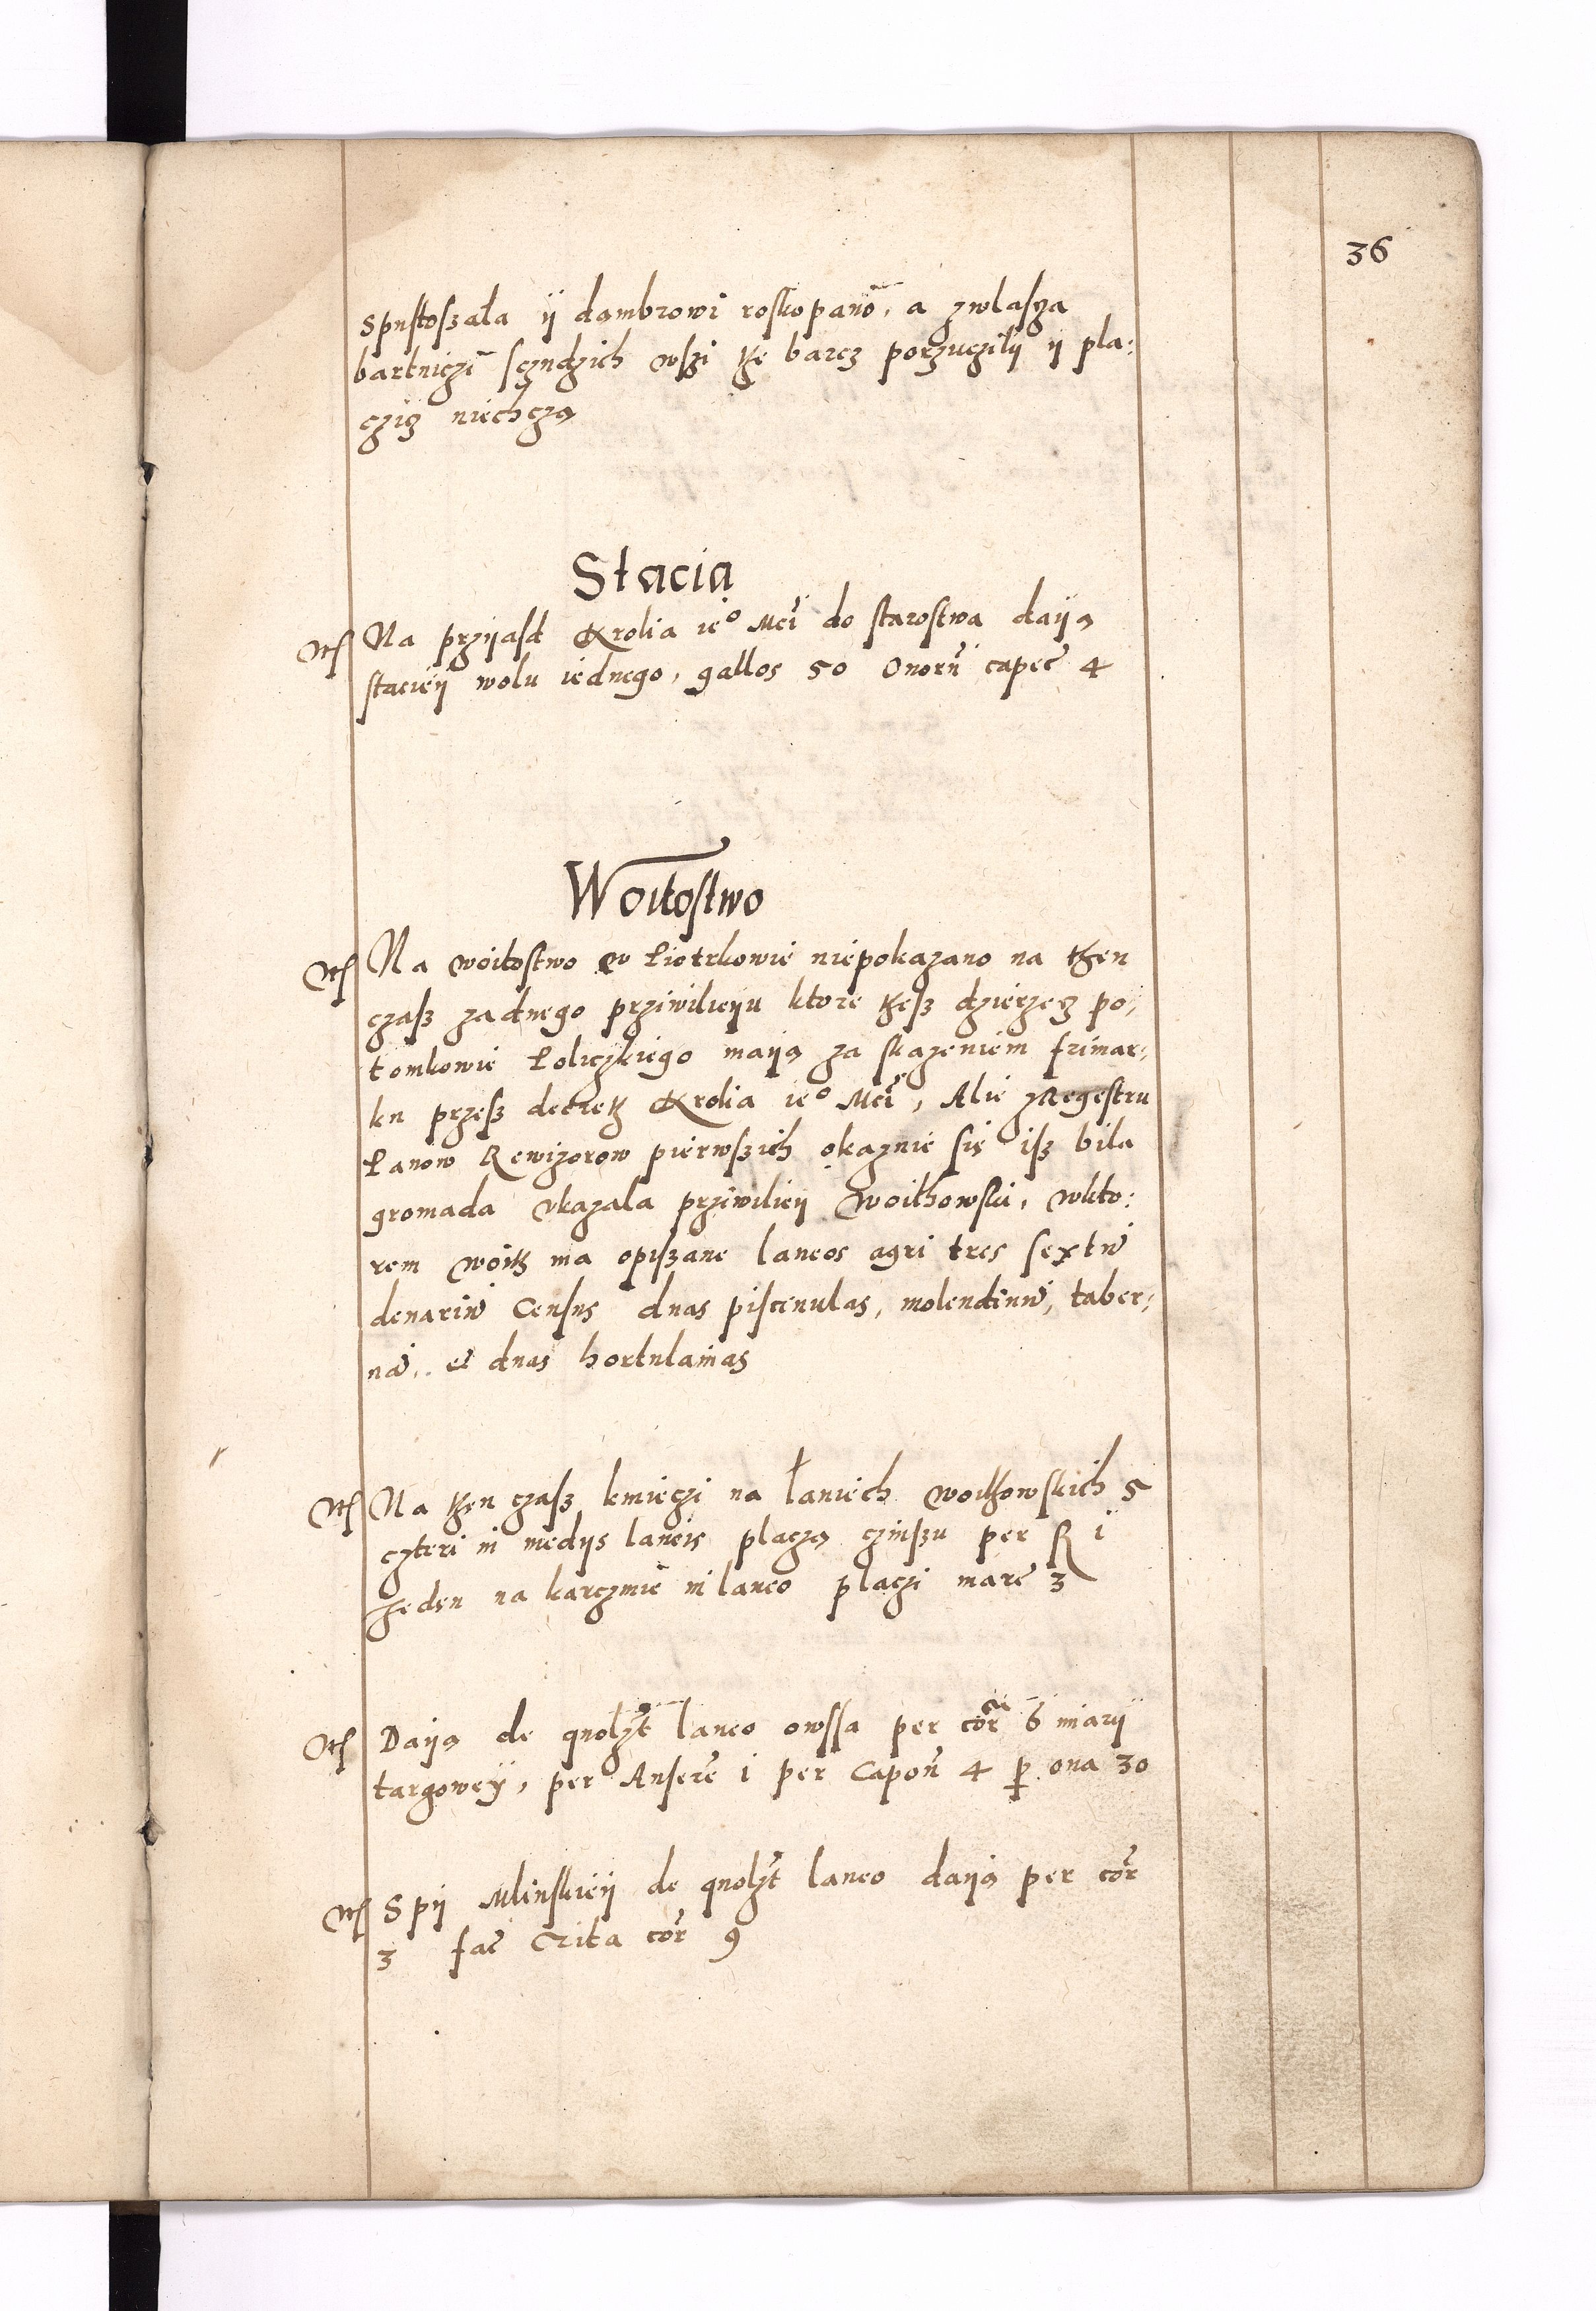 36
spustoszala ij dambrowi roskopano, a zwlascza
bartniczi sczudzich wszi the barcz porzuczilij ij pla:
czicz niechczą
Stacia
Itē Na przijasd Krolia ieº Mći do starostwa daiją
staciej wolu iednego, gallos 50 Ouorū capeć 4
Woitostwo
Itē Na woitostwo w Piotrkowie niepokazano na then
czasz zadnego przivilieiju ktore thesz dzierzecz po,
tomkowie Policzkiego maiją za skazeniem frimar,
ku przesz decreth Krolia ieº Mći, Alie zRegestru
Panow Rewizorow pierwszich okazuie się isz bila
gromada ukazala przivilieij woithowski, wkto:
rem woith ma opiszane laneos agri tres sextū
denariū Census duas piscinulas, molendinū, taber,
nā, et duas hortulanias
Itē Na then czasz kmieczi na łaniech woithowskich 5
czteri in medijs laneis placzą czinszu per R i
Jeden na karczmie in laneo placzi marć 3
Itē Daiją de quolzt laneo owssa per cor 6 miarij
targoweij, per Anserē i per Capon 4 p ova 30
Itē Spij Mlinskieij de quolzt laneo daiją per cor
3 fać Zita cor 9